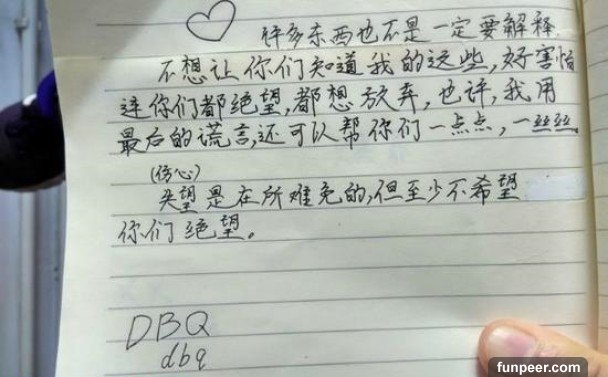 许多东西也不是一定要解释.
不想让你们知道我的这些,好害怕
连你们都绝望,都想放弃,也许,我用
最后的谎言,还可以帮你们一点点,一丝丝
(伤心)
失望是在所难免的,但至少不希望
你们绝望。
DBQ
dbq
funpeer.com